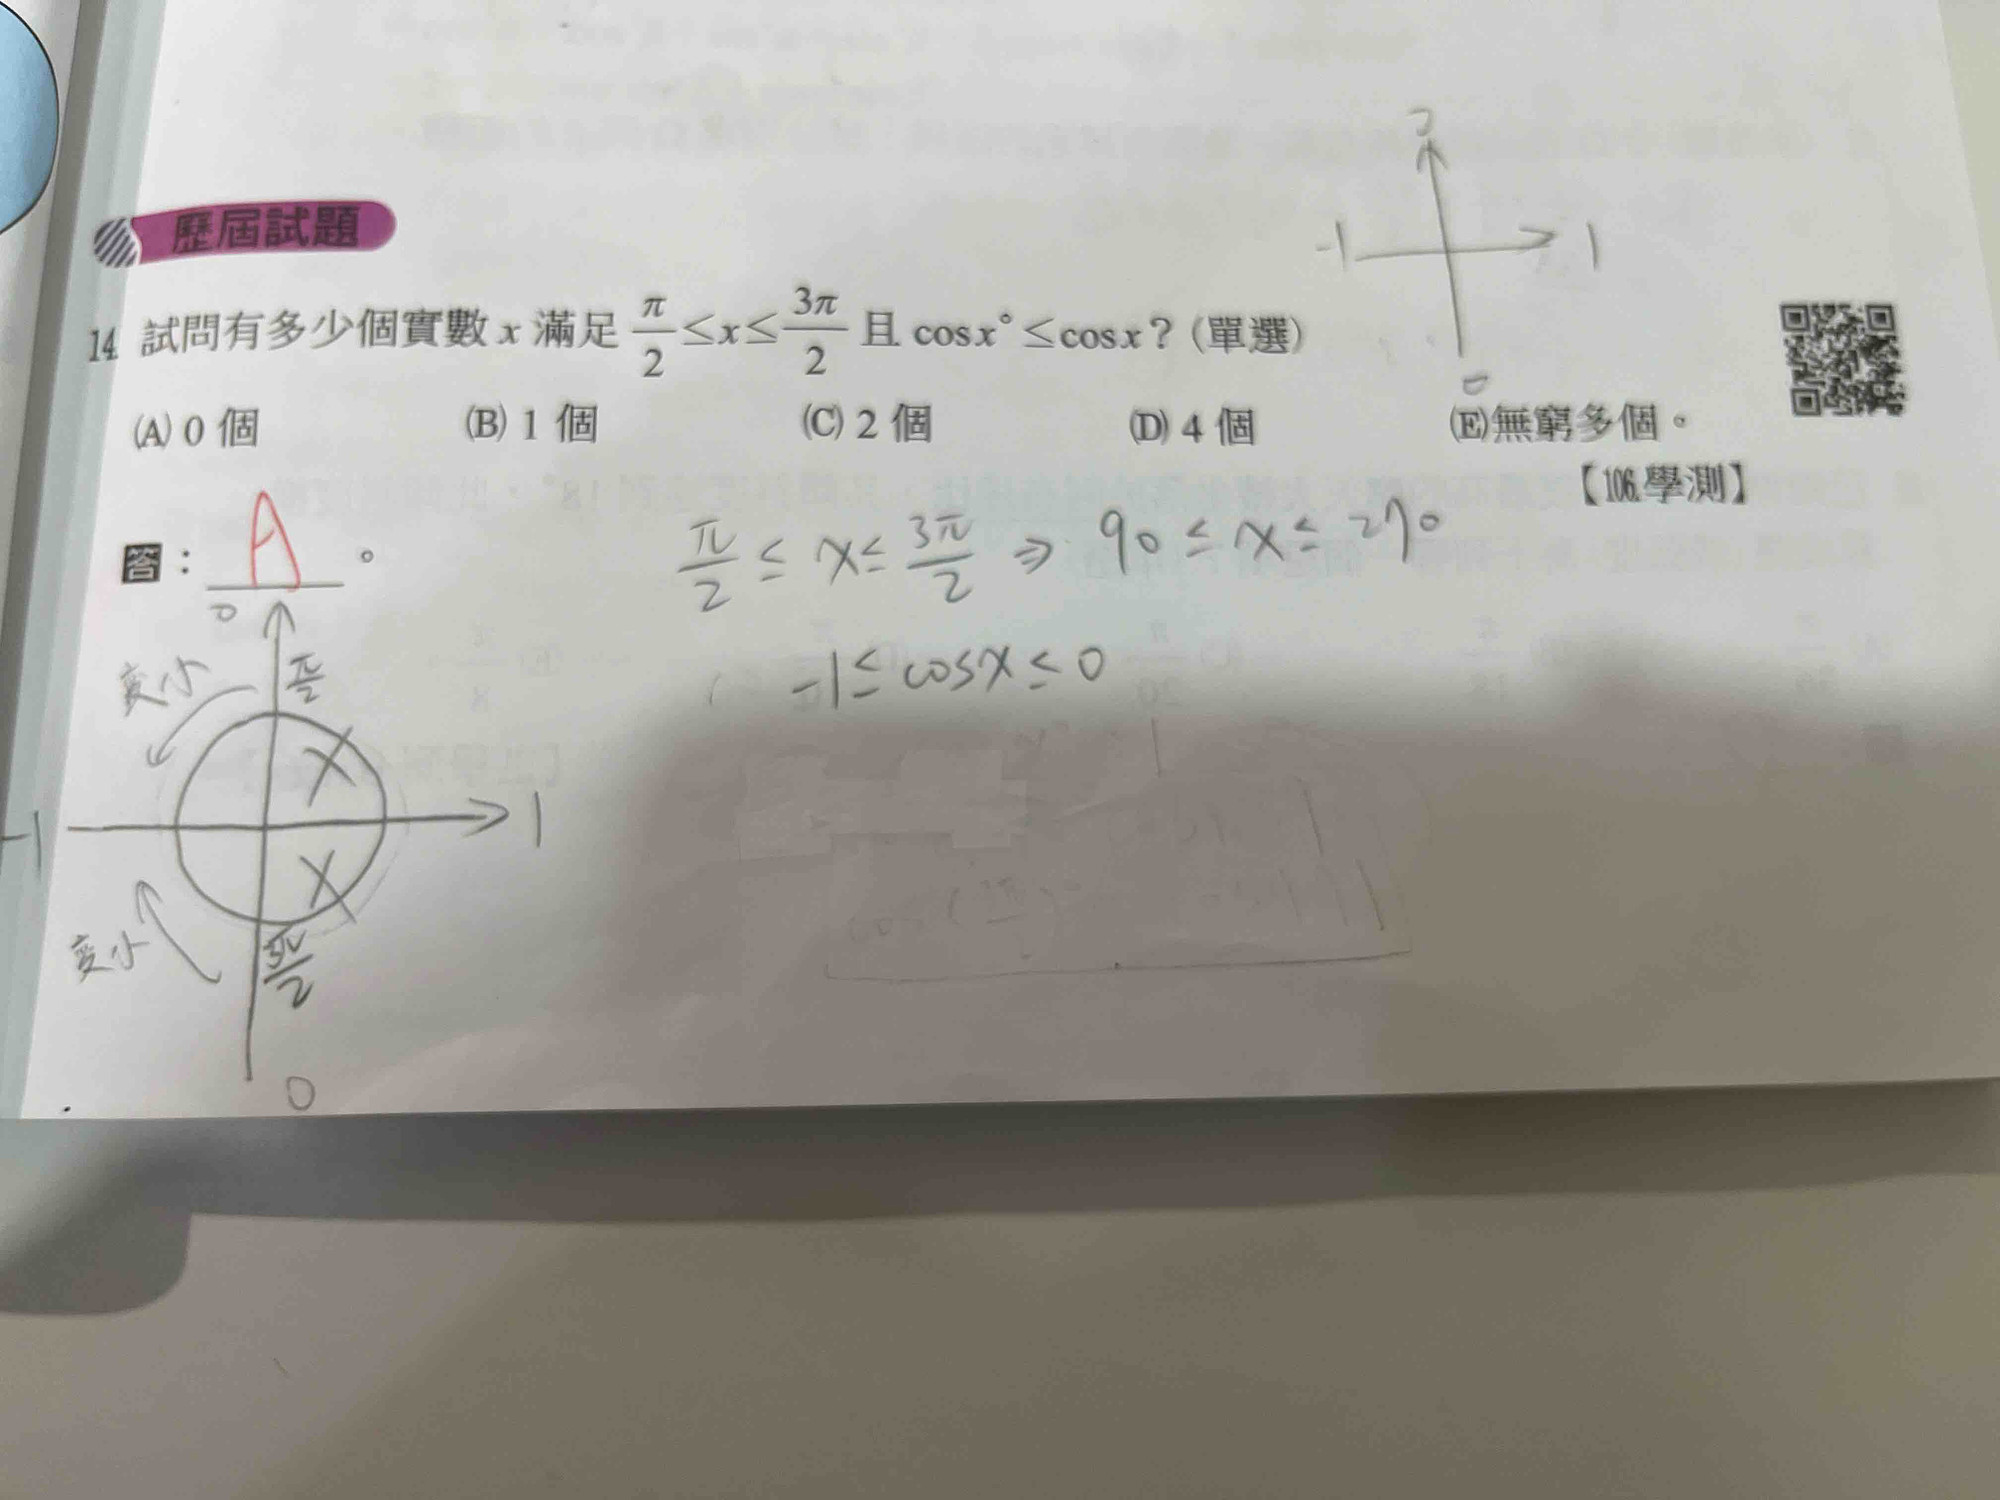 歷屆試題
14. 試問有多少個實數 x 滿足 π/2 ≤ x ≤ 3π/2 且 cosx° ≤ cosx？(單選)
(A) 0 個 (B) 1 個 (C) 2 個 (D) 4 個 (E)無窮多個。
【106.學測】
答： A 。
π/2 ≤ x ≤ 3π/2 ⇒ 90 ≤ x ≤ 270
-1 ≤ cosx ≤ 0
-1 1
0
0
變小 π/2
-1 1
變小 3π/2
0